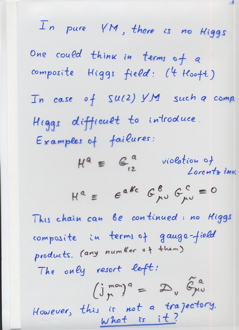 In pure YM, there is no Higgs
One could think in terms of a
composite Higgs field: ('t Hooft)
In case of SU(2) YM such a comp.
Higgs difficult to introduce.
Examples of failures:
H^a ≡ G^a_12 violation of
Lorentz inv.
H^a ≡ ε^abc G^b_μν G^c_μν ≡ 0
This chain can be continued: no Higgs
composite in terms of gauge-field
products. (any number of them)
The only resort left:
(j^mon_μ)^a = D_ν G̃^a_μν
However, this is not a trajectory.
What is it?